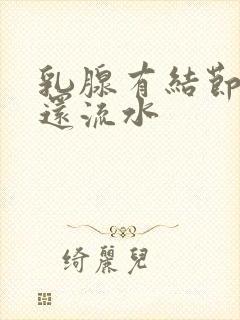 乳腺有結節
還流水
綺麗兒